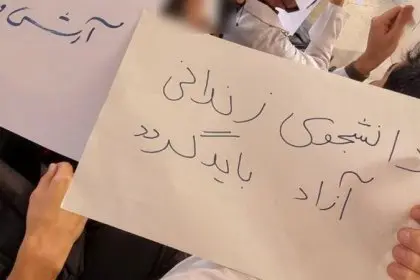 آرشی
دانشجوی زندانی
آزاد باید گردد